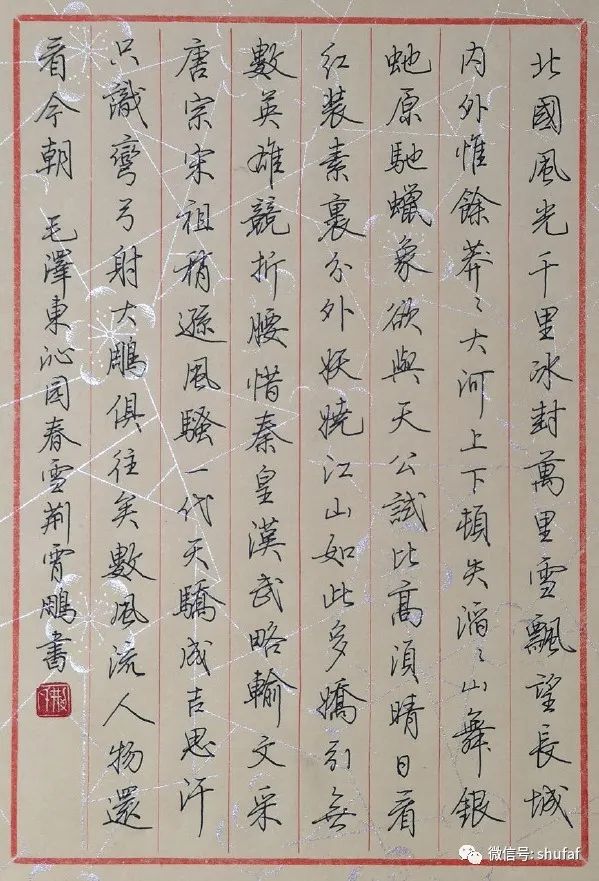 北國風光千里冰封萬里雪飄望長城
内外惟餘莽〻大河上下頓失滔〻山舞銀
虵原馳蠟象欲與天公試比高須晴日看
红装素裹分外妖嬈江山如此多嬌引無
數英雄競折腰惜秦皇漢武略輸文采
唐宗宋祖稍遜風騷一代天驕成吉思汗
只識彎弓射大鵰俱往矣數風流人物還
看今朝 毛澤東沁园春雪荊霄鵬書
微信号: shufaf